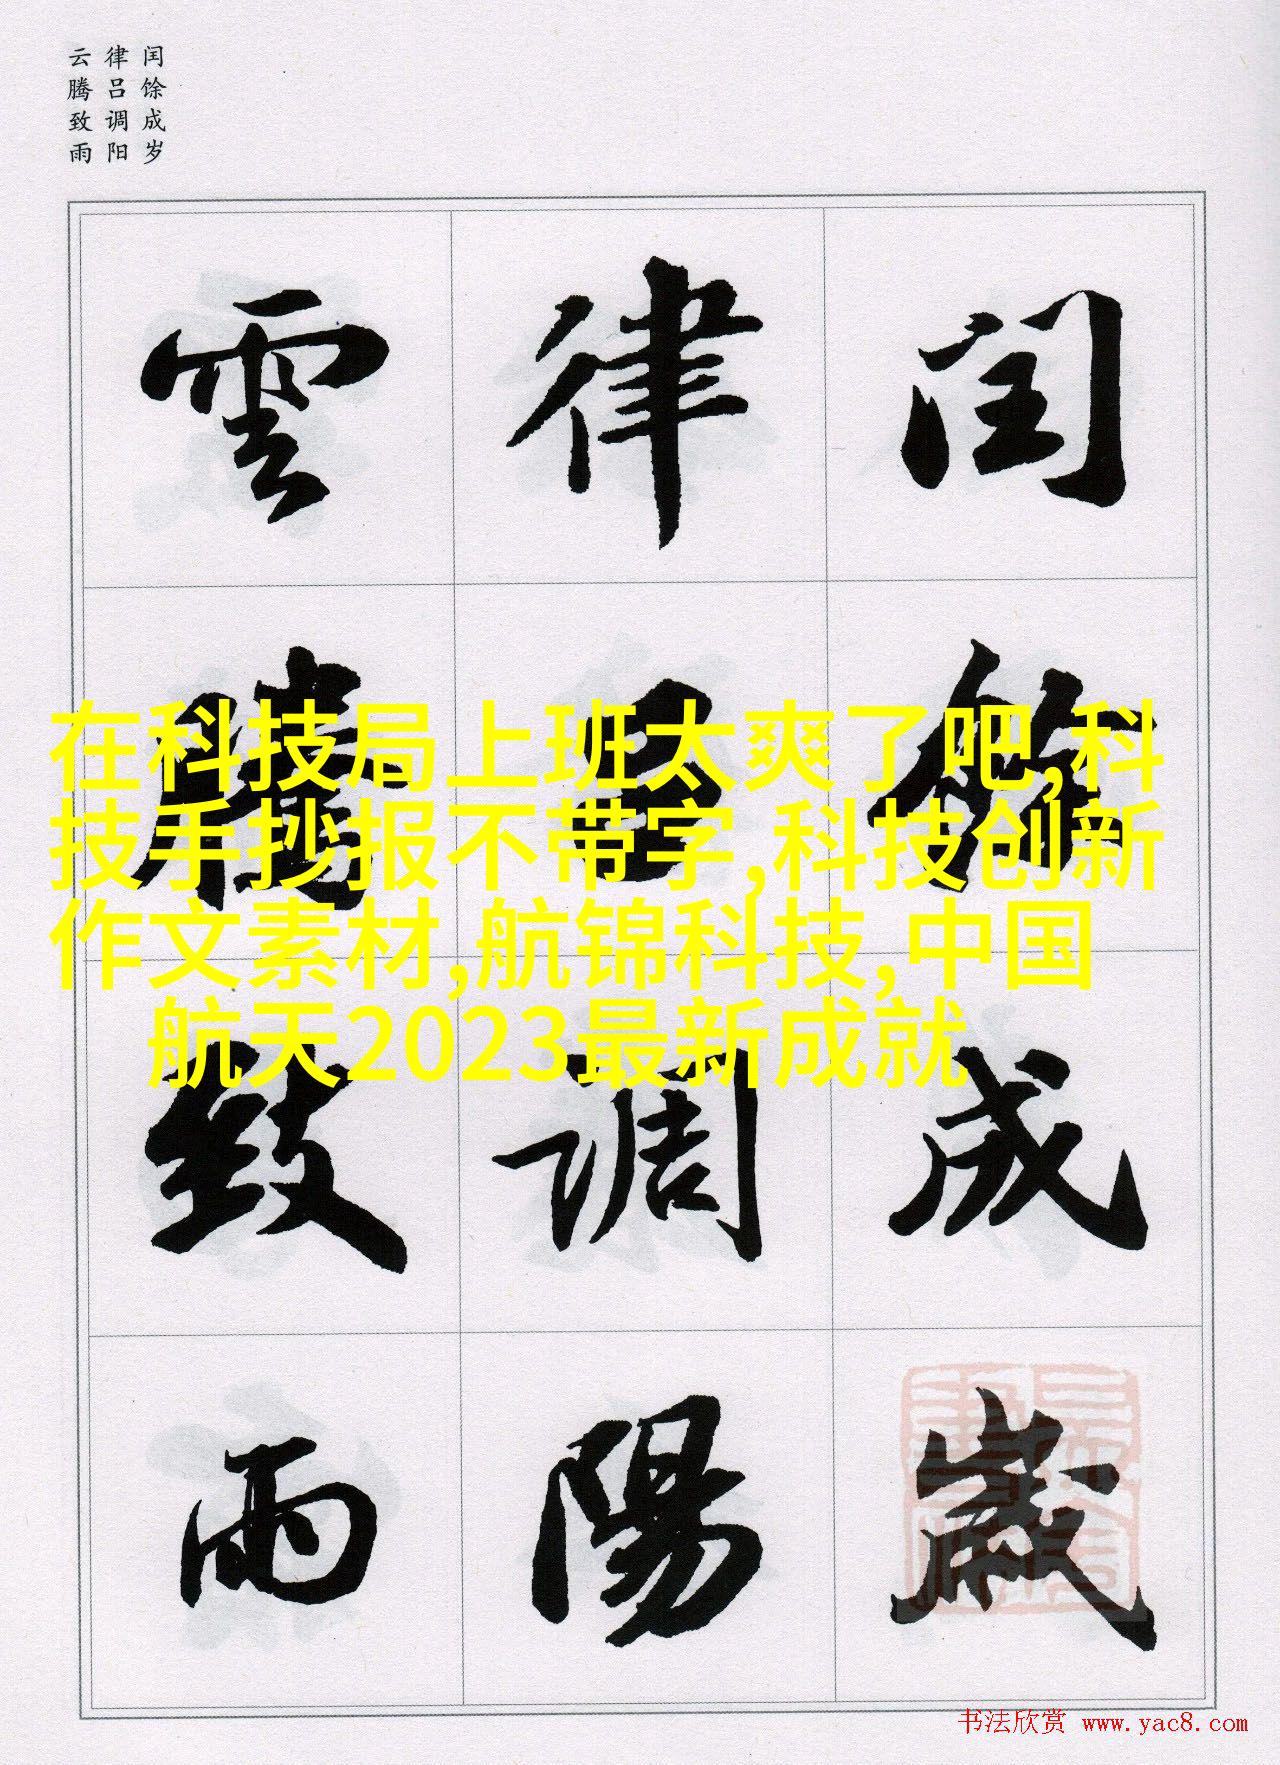 闰馀成岁
律吕调阳
云腾致雨
闰馀成歲
律吕調陽
雲騰致雨
在科技局上班太爽了吧,科
技手抄报不带字,科技创新
作文素材,航锦科技,中国
航天2023最新成就
书法欣赏 www.yac8.com